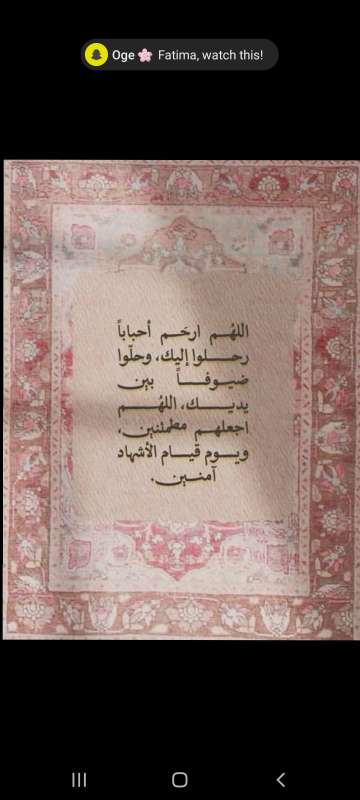 Oge🌸 Fatima, watch this!
اللهُم ارحَم أحباباً
رحلوا إليك، وحلّوا
ضيوفاً بين
يديك، اللهُم
اجعلهم مطمئنين،
ويوم قيام الأشهاد
آمنين.